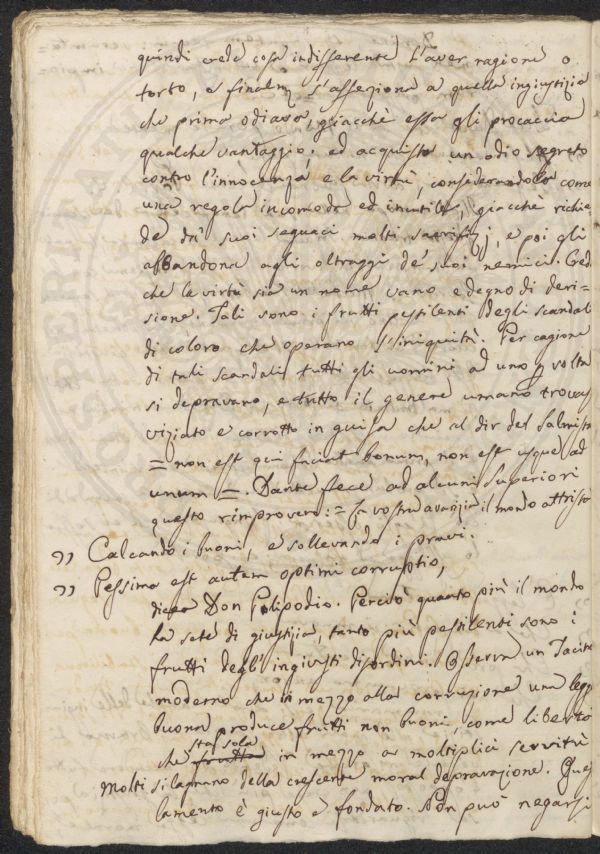 quindi crede cosa indifferente l'aver ragione o
torto, e finalm.e s'affeziona a quella ingiustizia
che prima odiava, giacchè essa gli procaccia
qualche vantaggio; ed acquista un odio segreto
contro l'innocenza e la virtù, considerandola come
una regola incomoda ed inutile, giacchè richie=
de da' suoi seguaci molti sacrifizj, e poi gli
abbandona agli oltraggi de' suoi nemici. Crede
che la virtù sia un nome vano e degno di deri=
sione. Tali sono i frutti pestilenti degli scandali
di coloro che operano l'iniquità. Per cagione
di tali scandali tutti gli uomini ad uno p volta
si depravano, e tutto il genere umano trovasi
viziato e corrotto in guisa che al dir del Salmista
= non est qui faciat bonum, non est usque ad
unum =. Dante fece ad alcuni Superiori
questo rimprovero: = la vostra avarizia il mondo attrista
" Calcando i buoni, e sollevando i pravi.
" Pessima est autem optimi corruptio,
dicea Don Polipodio. Perciò quanto più il mondo
ha sete di giustizia, tanto più pestilenti sono i
frutti degl'ingiusti disordini. Osserva un Tacito
moderno che in mezzo alla corruzione una legge
buona produce frutti non buoni, come libertà
che sta sola in mezzo a moltiplici servitù
Molti si lagnano della crescente moral depravazione. Questo
lamento è giusto e fondato. Non può negarsi